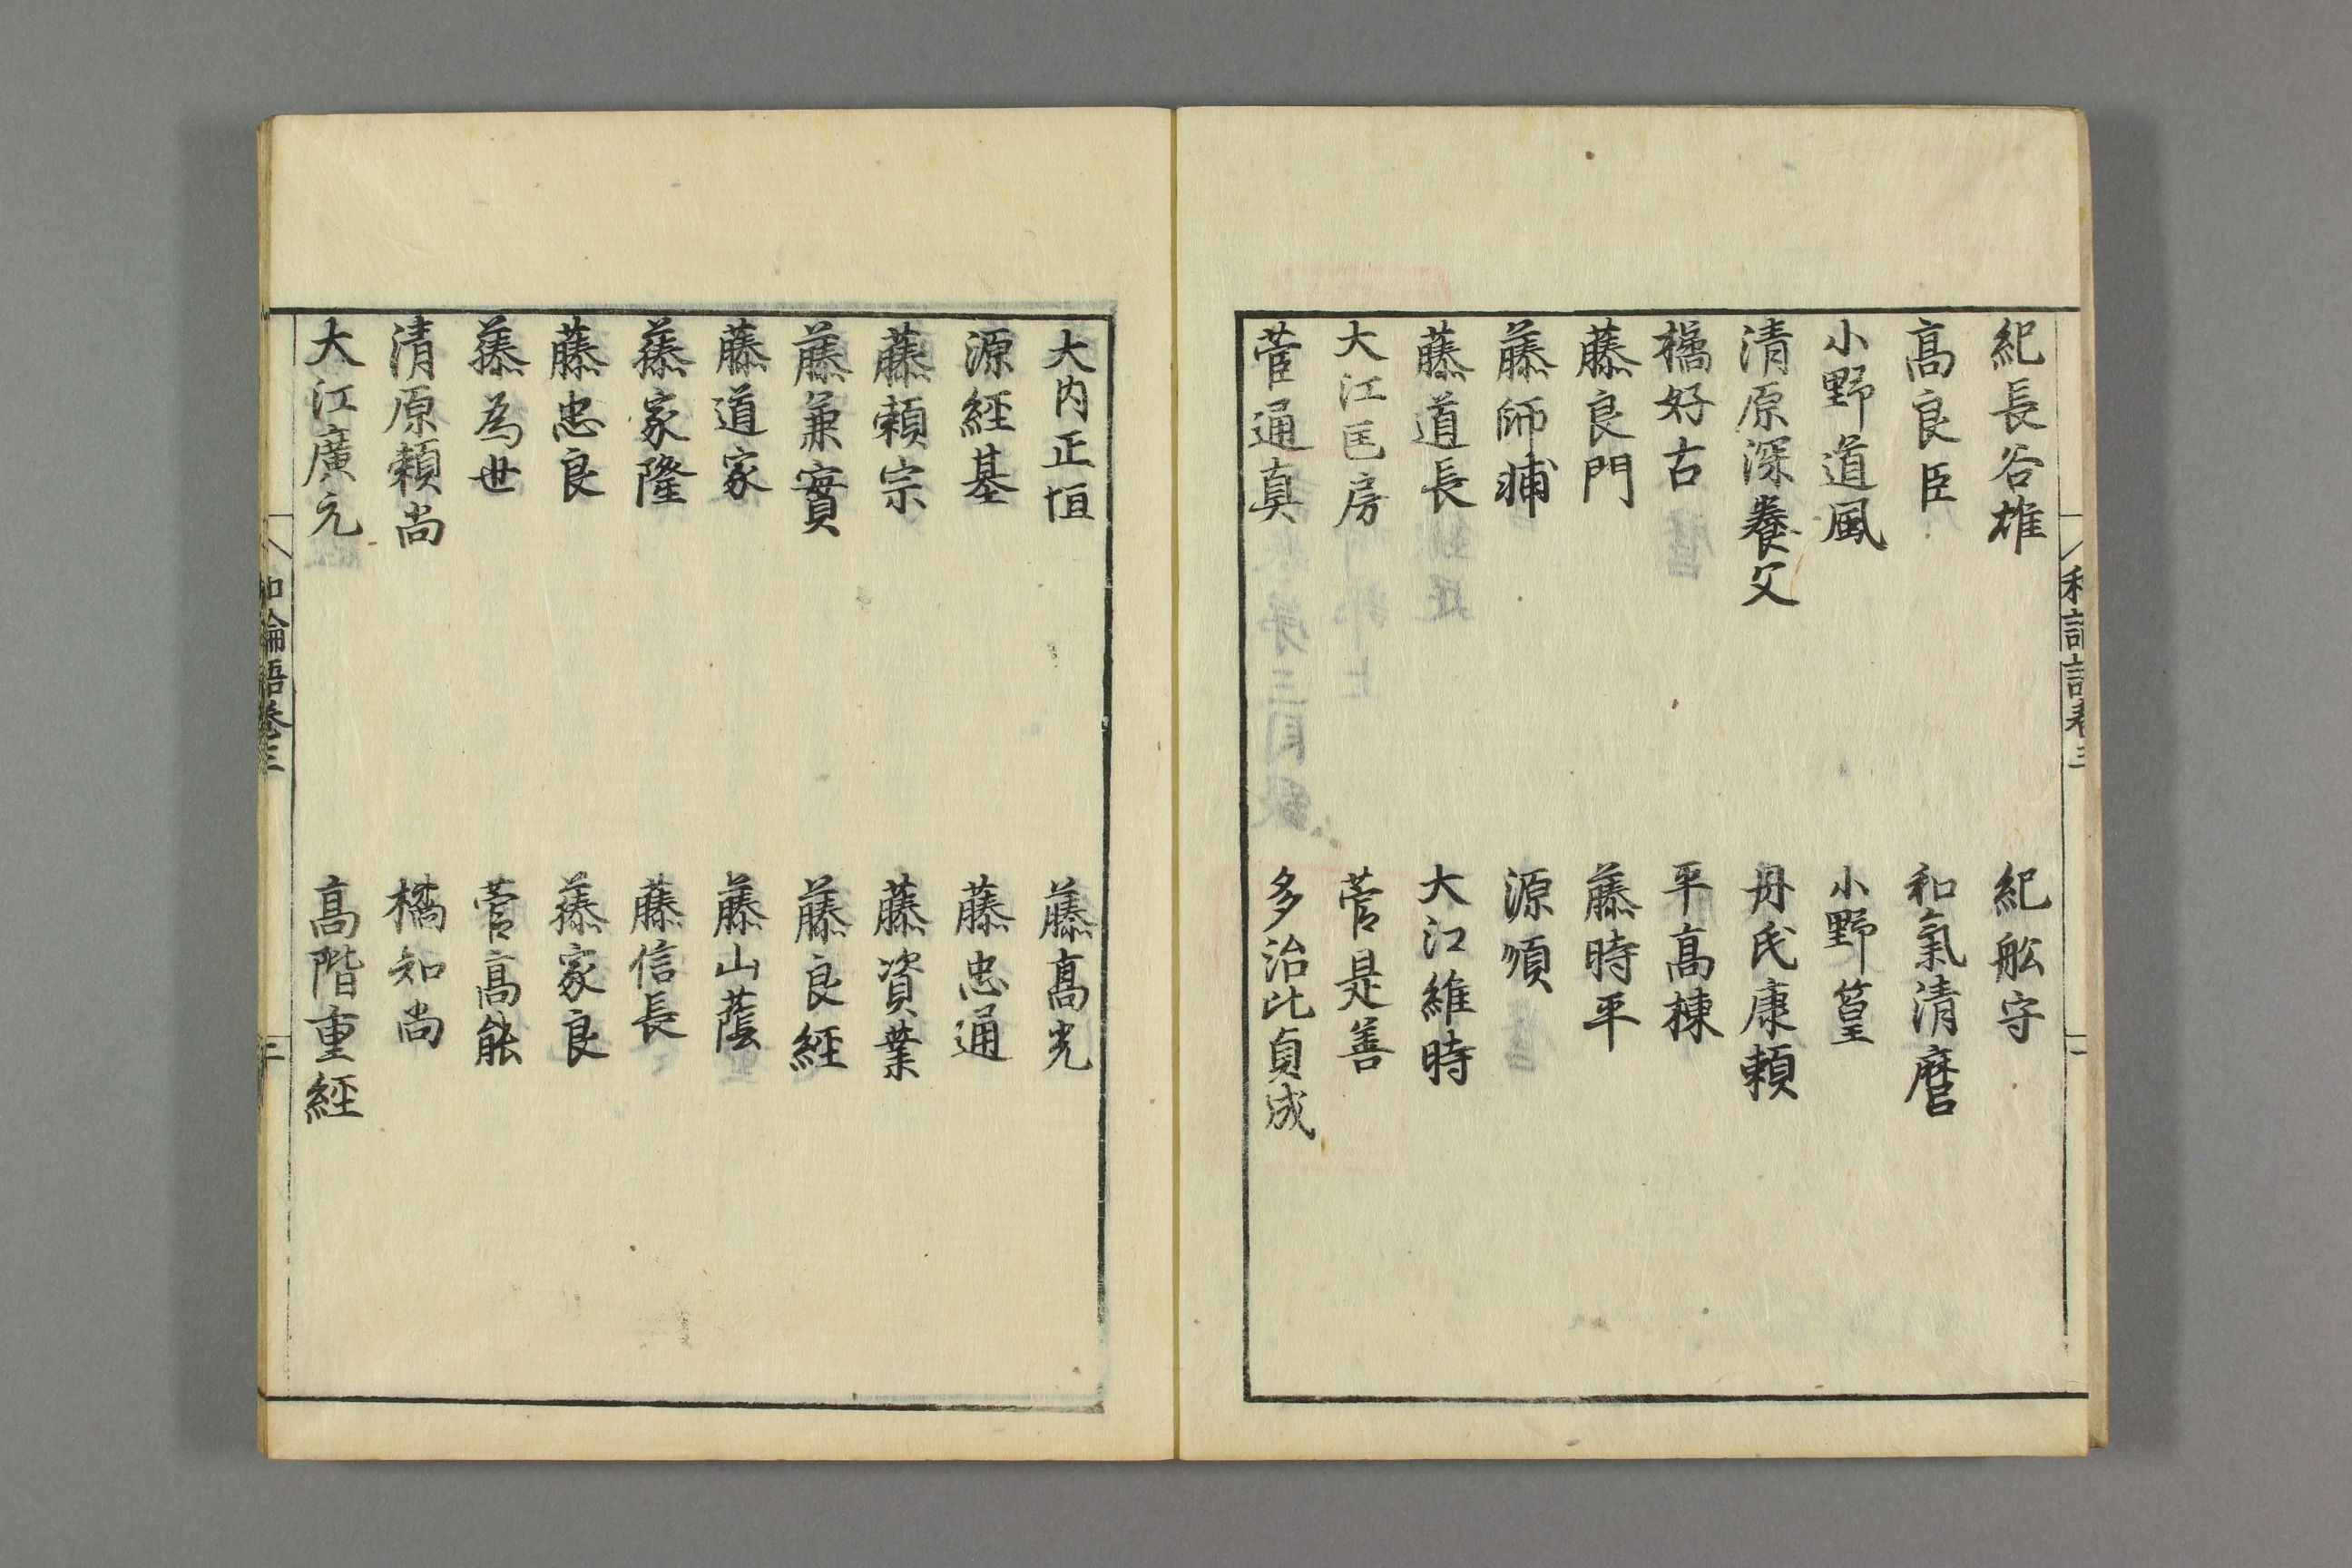 紀長谷雄　紀舩守
高良臣　和氣清麿
小野道風　小野篁
清原深養父　丹氏康頼
橘好古　平高棟
藤良門　藤時平
藤師輔　源頒
藤道長　大江維時
大江匡房　菅是善
菅通真　多治比貞成
大内正恒　藤高光
源經基　藤忠通
藤頼宗　藤資業
藤兼實　藤良經
藤道家　藤山蔭
藤家隆　藤信長
藤忠良　藤家良
藤為世　菅高能
清原頼尚　橘知尚
大江廣元　高階重經
和論語卷三